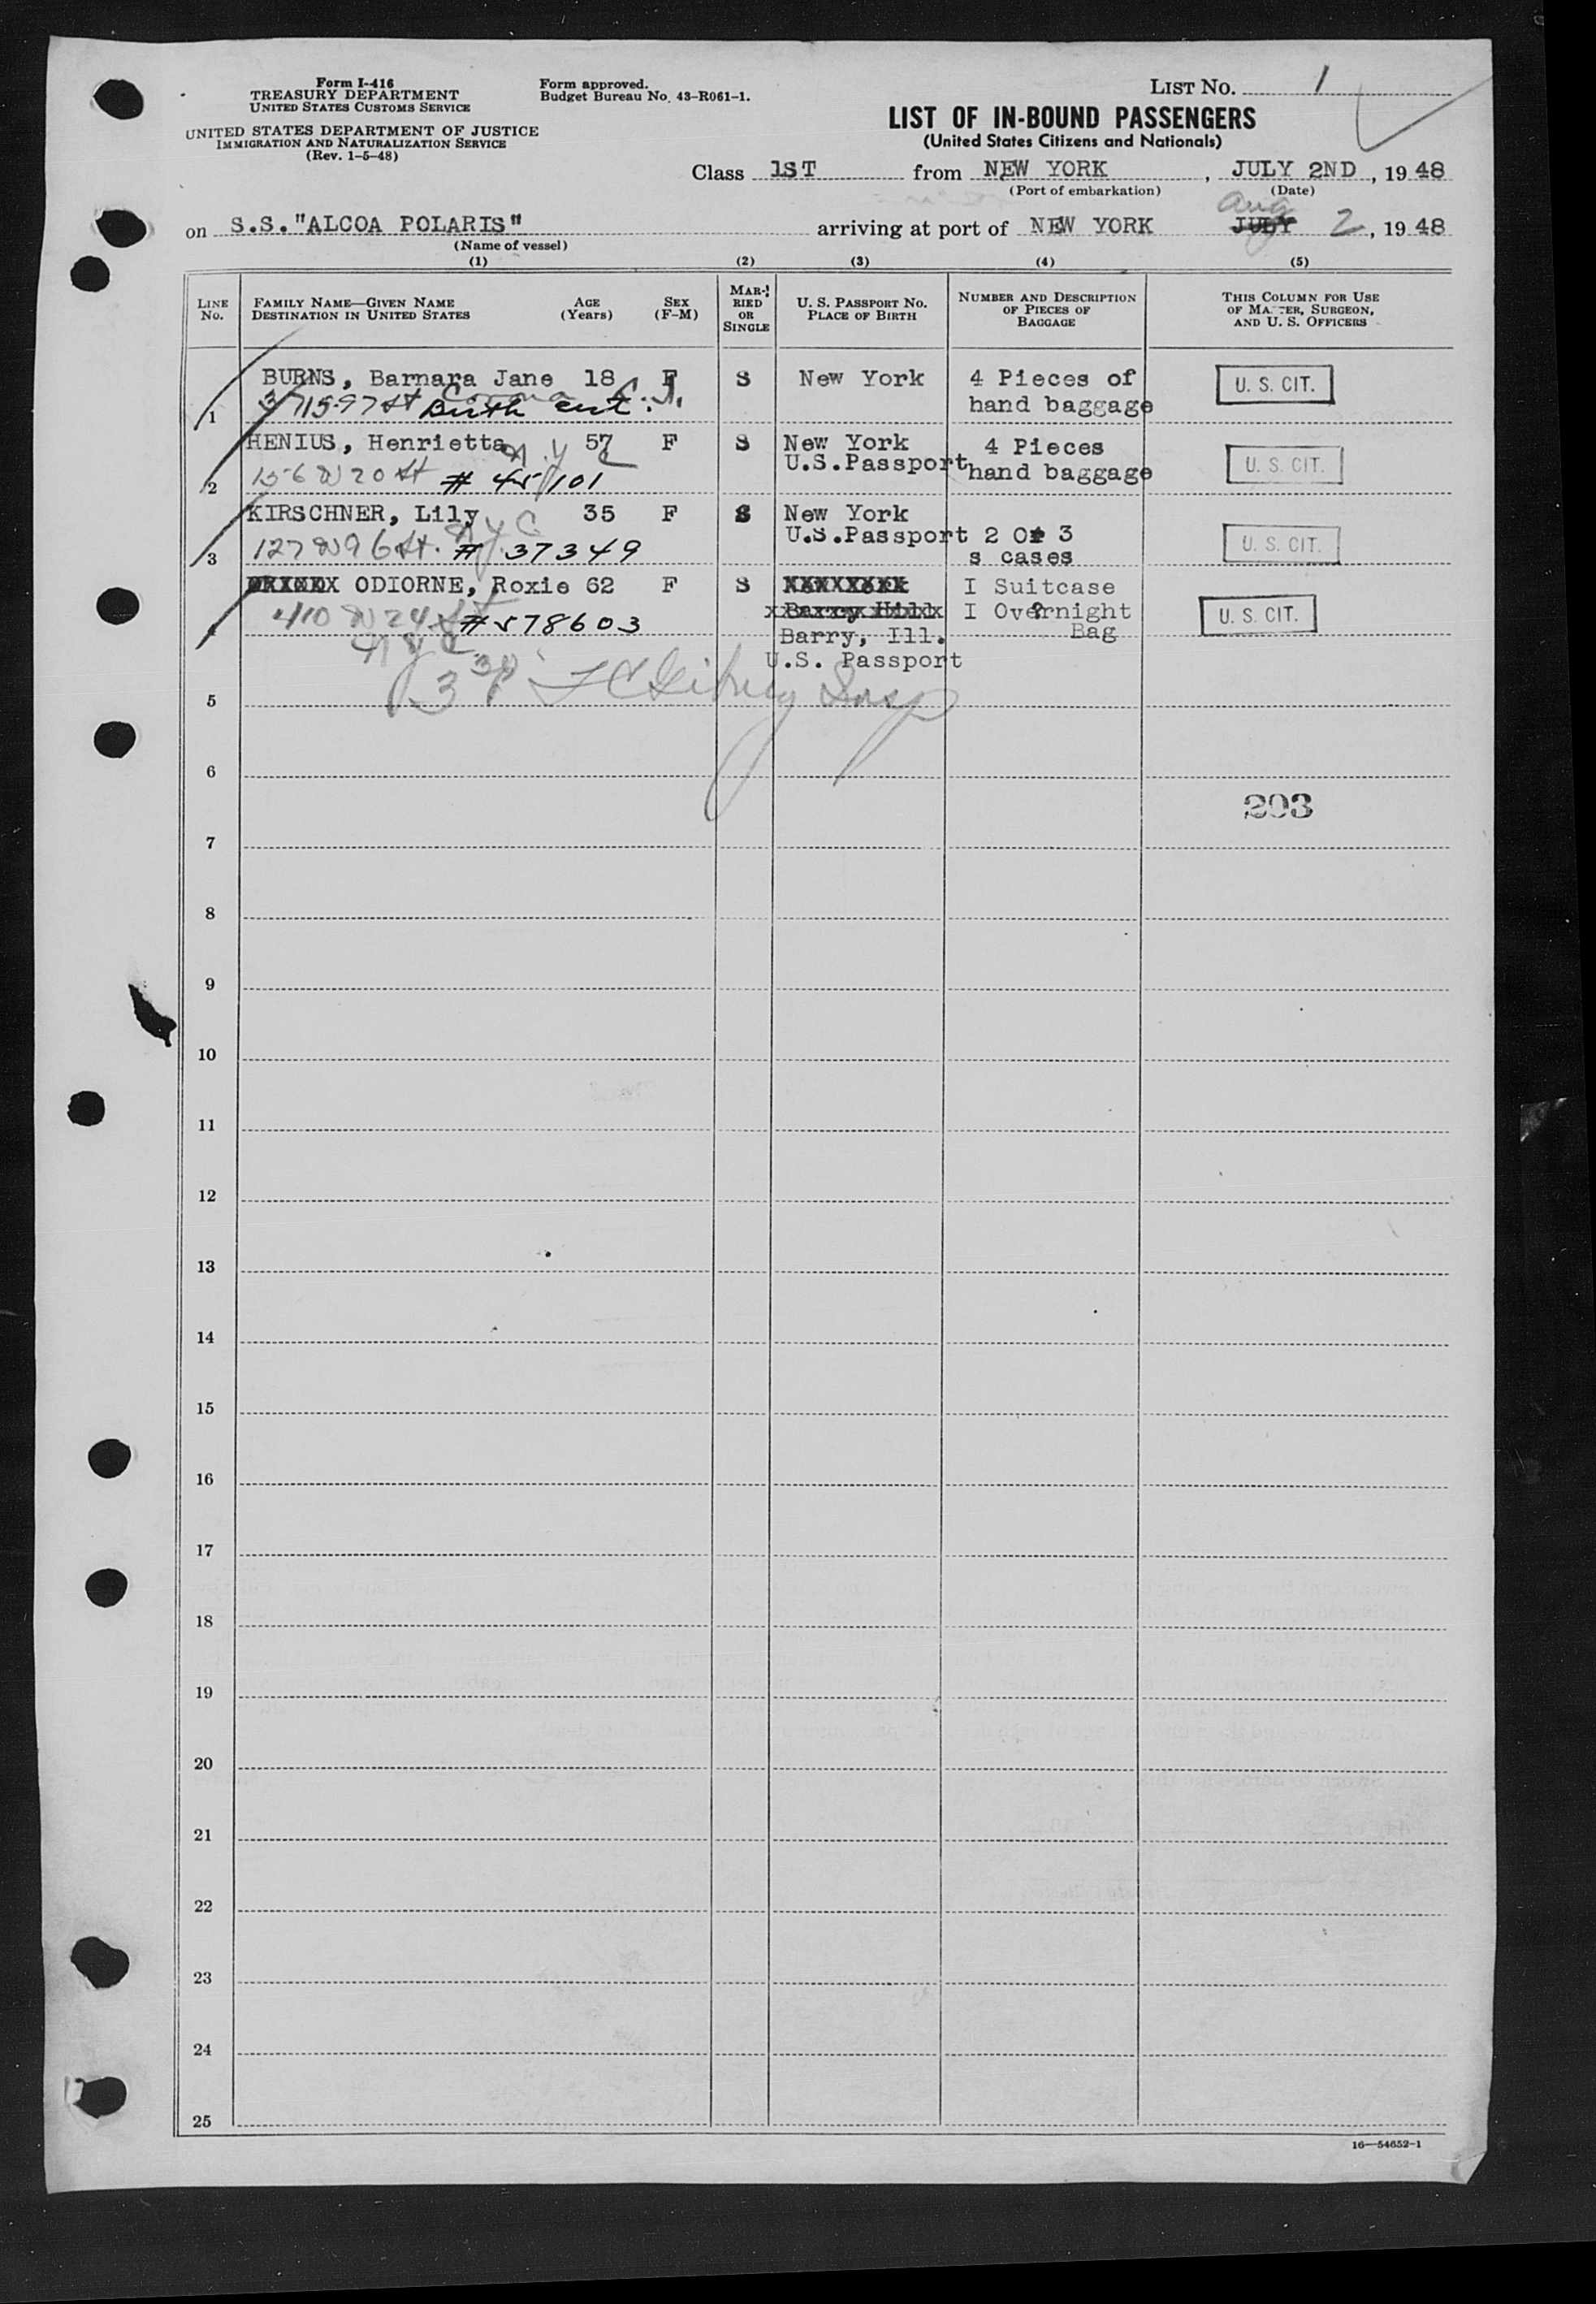 Form I-416
TREASURY DEPARTMENT
UNITED STATES CUSTOMS SERVICE
UNITED STATES DEPARTMENT OF JUSTICE
IMMIGRATION AND NATURALIZATION SERVICE
(Rev. 1-5-48)
Form approved.
Budget Bureau No. 43-R061-1.
LIST No. 1
LIST OF IN-BOUND PASSENGERS
(United States Citizens and Nationals)
Class 1ST from NEW YORK, JULY 2ND, 1948
(Port of embarkation) (Date)
on S.S. "ALCOA POLARIS" arriving at port of NEW YORK JULY Aug 2, 1948
(Name of vessel)
(1) (2) (3) (4) (5)
LINE No.
FAMILY NAME—GIVEN NAME
DESTINATION IN UNITED STATES
AGE (Years)
SEX (F-M)
MARRIED OR SINGLE
U. S. PASSPORT No.
PLACE OF BIRTH
NUMBER AND DESCRIPTION
OF PIECES OF
BAGGAGE
THIS COLUMN FOR USE
OF MASTER, SURGEON,
AND U. S. OFFICERS
BURNS, Barnara Jane 18 F S New York 4 Pieces of U. S. CIT.
1 97 St Corona L.I. Birth cert. hand baggage
HENIUS, Henrietta 57 F S New York 4 Pieces U. S. CIT.
U.S.Passport hand baggage
2 156 W 20 St N.Y.C # 45101
KIRSCHNER, Lily 35 F S New York U. S. CIT.
U.S.Passport 2 Or 3
3 127 W 96 St. N.Y.C. # 37349 s cases
ODIORNE, Roxie 62 F S I Suitcase
xBarryxHillx I Overnight U. S. CIT.
4 410 W 24 St #578603 Bag
N Y C Barry, Ill.
U.S. Passport
3 30 P Insp
5
6
203
7
8
9
10
11
12
13
14
15
16
17
18
19
20
21
22
23
24
25
16—54652-1